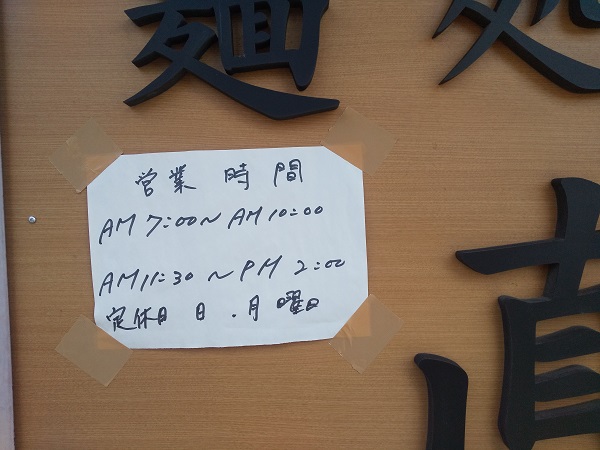 麺処
直
営業時間
AM 7:00~AM 10:00
AM 11:30~PM 2:00
定休日 日.月曜日